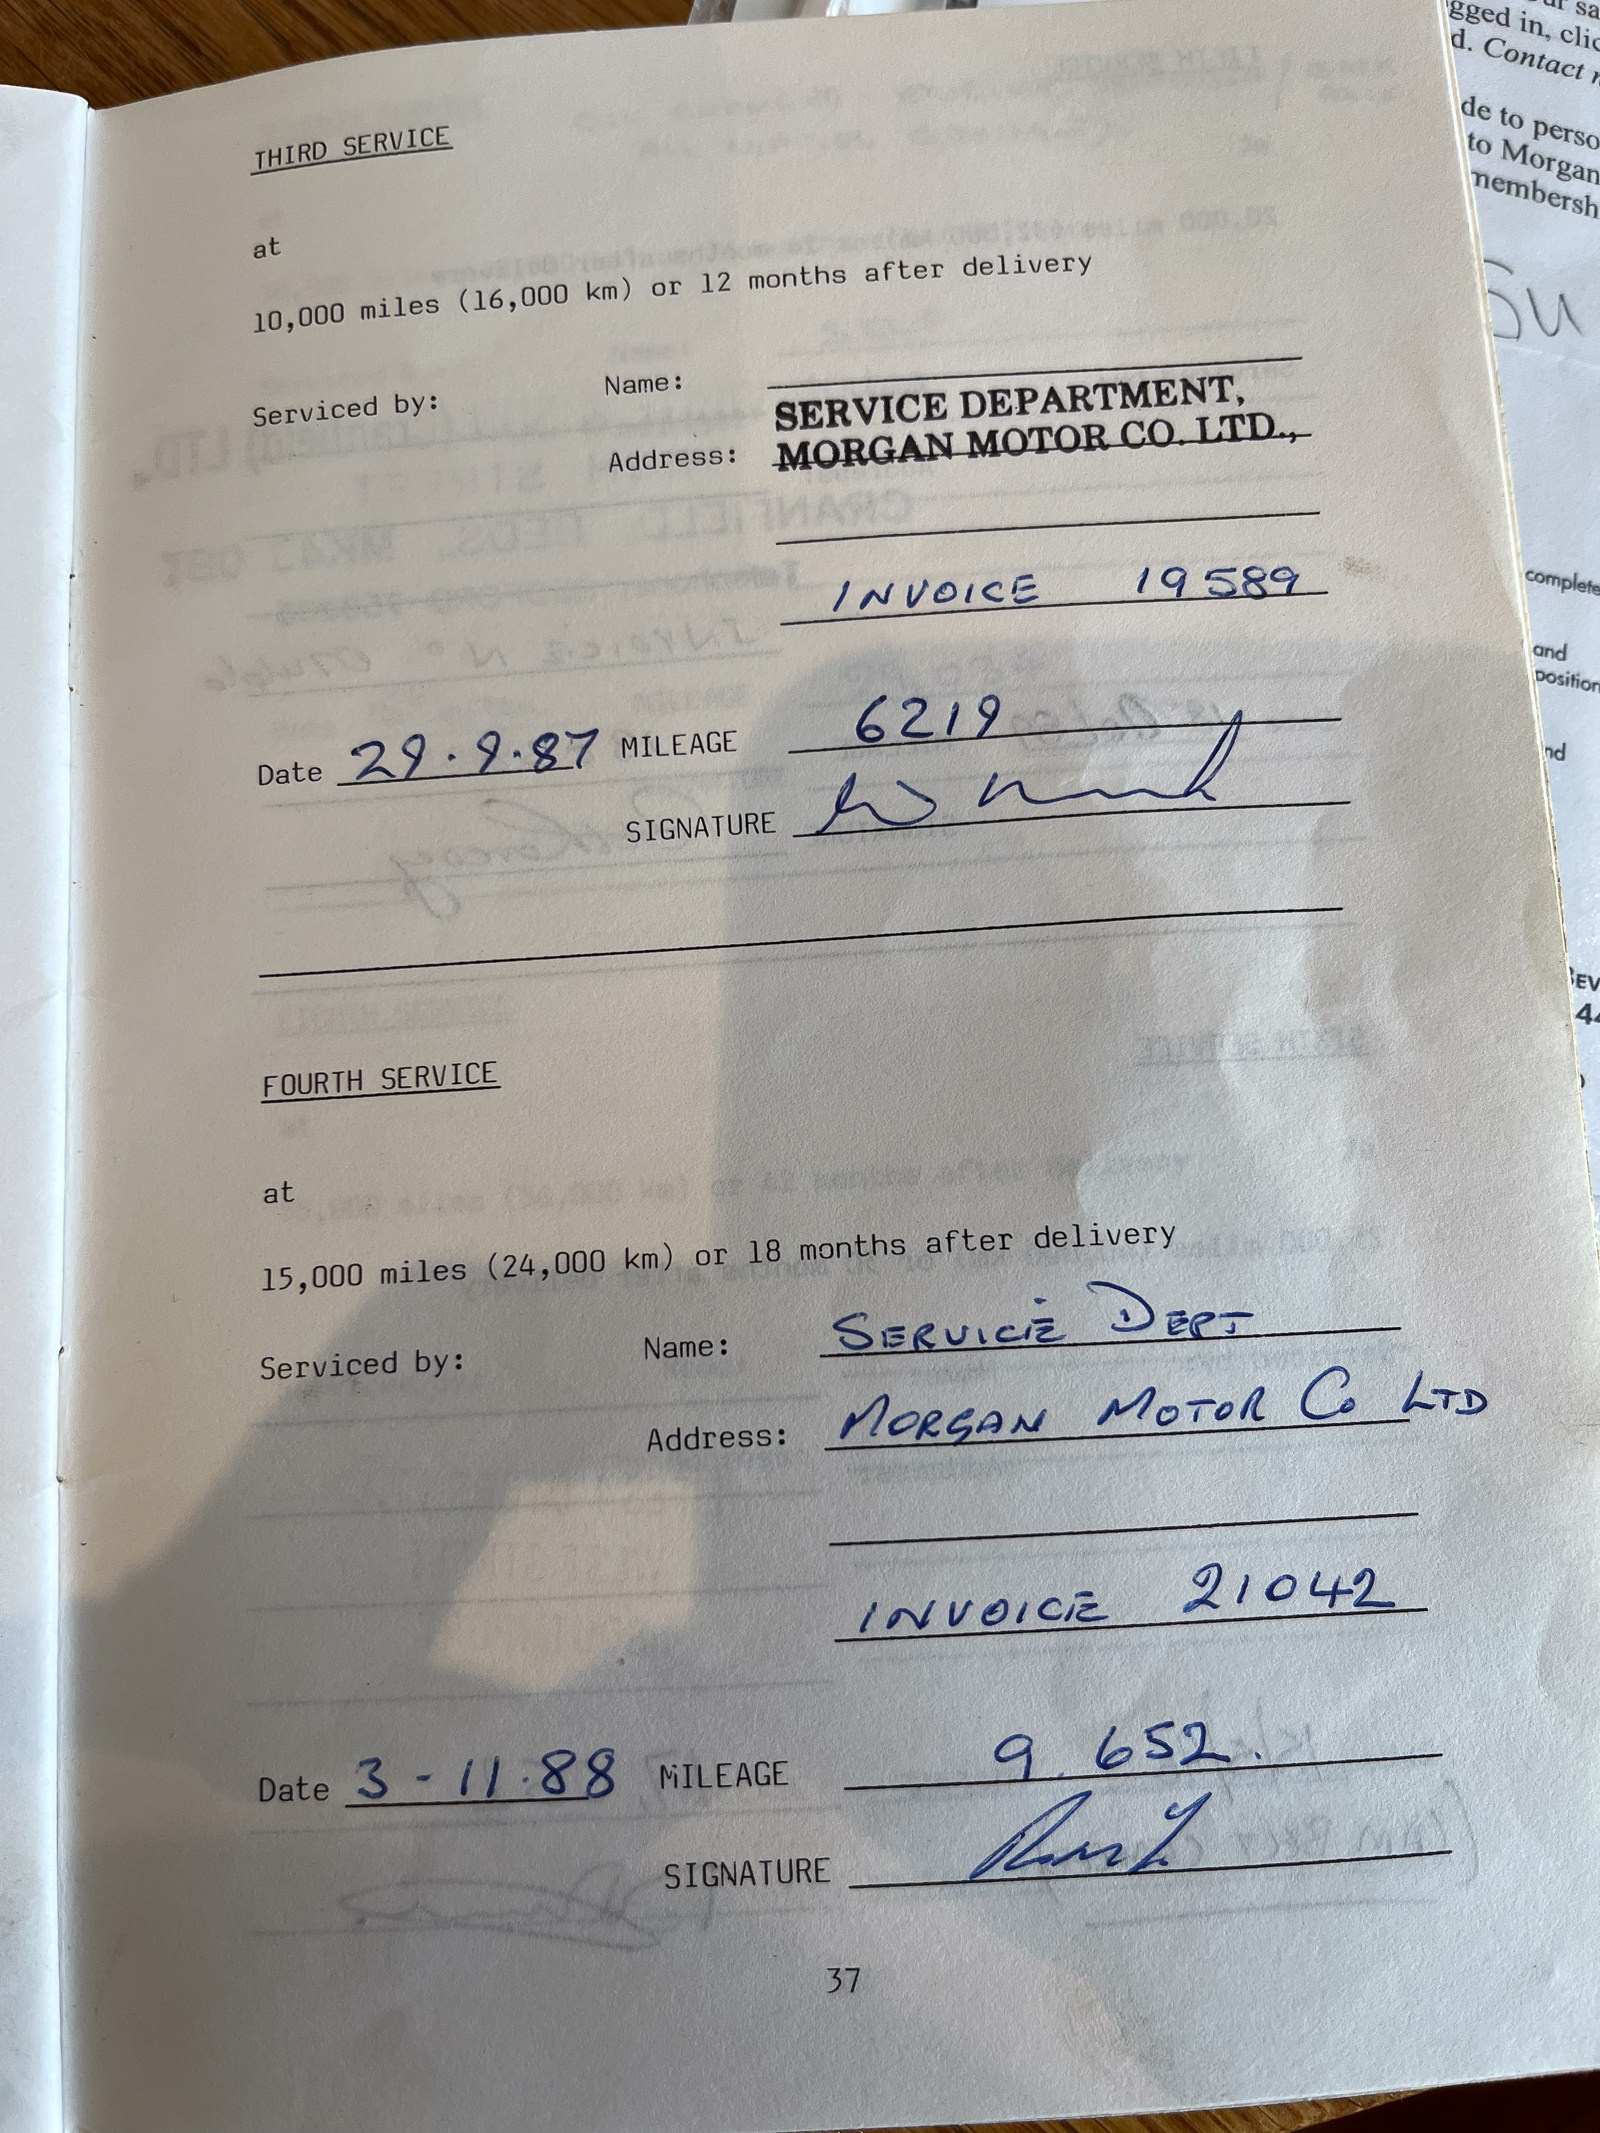 THIRD SERVICE
at
10,000 miles (16,000 km) or 12 months after delivery
Serviced by: Name:
SERVICE DEPARTMENT,
Address: MORGAN MOTOR CO. LTD.,
INVOICE 19589
Date 29.9.87 MILEAGE 6219
SIGNATURE
FOURTH SERVICE
at
15,000 miles (24,000 km) or 18 months after delivery
Serviced by: Name: SERVICE DEPT
Address: MORGAN MOTOR Co LTD
INVOICE 21042
Date 3-11.88 MILEAGE 9.652.
SIGNATURE
37
gged in, clic
d. Contact
de to perso
to Morgan
membersh
complete
and
position
nd